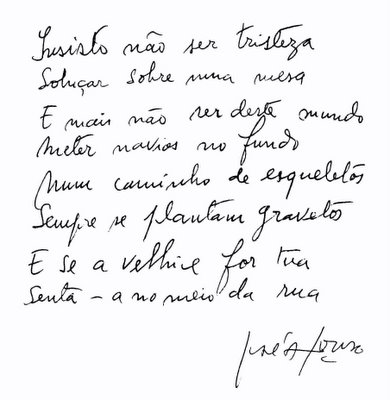 Insisto não ser tristeza
Soluçar sobre uma mesa
E mais não ser deste mundo
Meter navios no fundo
Num caminho de esqueletos
Sempre se plantam gravetos
E se a velhice for tua
Senta-a no meio da rua
José Afonso